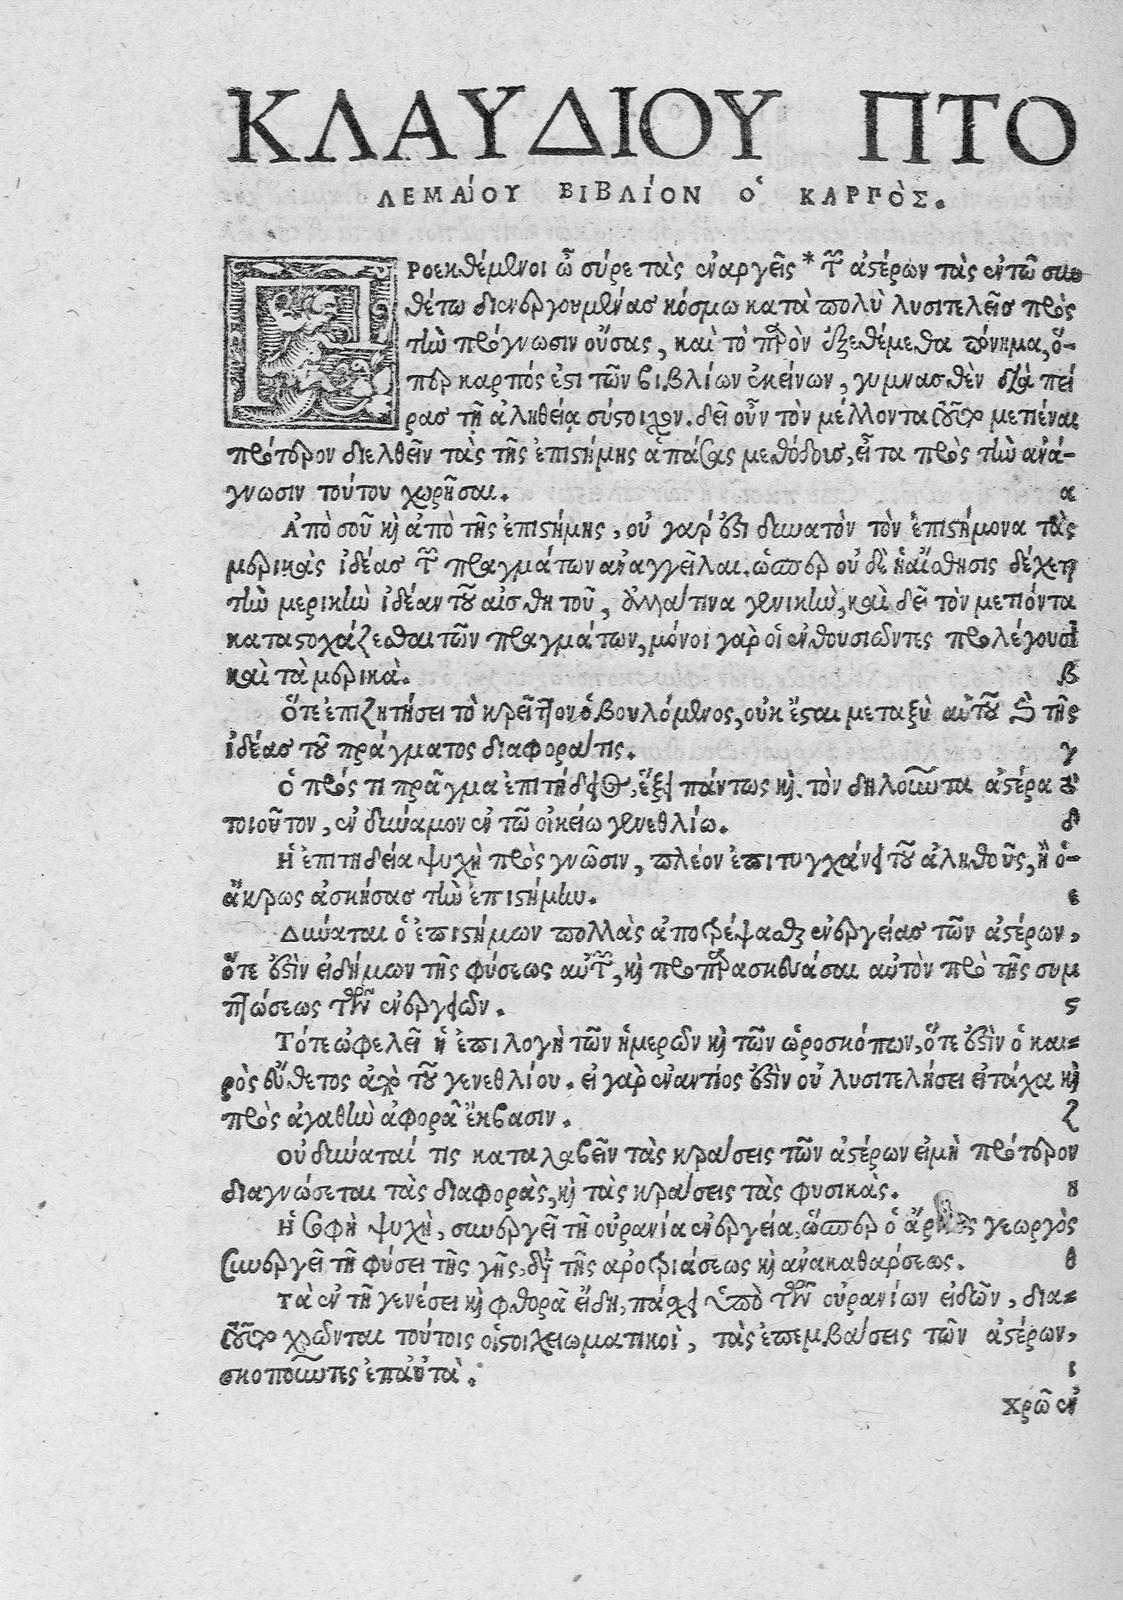 ΚΛΑΥΔΙΟΥ ΠΤΟ
ΛΕΜΑΊΟΥ ΒΙΒΛΊΟΝ Ὁ ΚΑΡΠῸΣ.
ΡΟΕΚθέμενοι ὦ σύρε τὰς ἐναργεῖς * τῶν ἀστέρων τὰς ἐν τῶ συν
θέτω διενεργουμένας κόσμω κατὰ πολὺ λυσιτελεῖς πρὸς
τὴν πρόγνωσιν οὔσας, καὶ τὸ παρὸν ἐξεθέμεθα πόνημα, ὅ-
περ καρπός ἐστι τῶν βιβλίων ἐκείνων, γυμνασθὲν διὰ πεί
ρας τῇ ἀληθείᾳ σύστοιχον. δεῖ οὖν τὸν μέλλοντα τοῦτο μετιέναι
πρότερον διελθεῖν τὰς τῆς ἐπιστήμης ἁπάσας μεθόδους, εἶτα πρὸς τὴν ἀνά-
γνωσιν τούτου χωρῆσαι. α
Ἀπὸ σοῦ καὶ ἀπὸ τῆς ἐπιστήμης, οὐ γάρ ἐστι δυνατὸν τὸν ἐπιστήμονα τὰς
μερικὰς ἰδέας τῶν πραγμάτων ἀναγγεῖλαι. ὥσπερ οὐδὲ ἡ αἴσθησις δέχεται
τὴν μερικὴν ἰδέαν τοῦ αἰσθητοῦ, ἀλλά τινα γενικὴν, καὶ δεῖ τὸν μετιόντα
καταστοχάζεσθαι τῶν πραγμάτων, μόνοι γὰρ οἱ ἐνθουσιῶντες προλέγουσι
καὶ τὰ μερικὰ. β
Ὅτε ἐπιζητήσει τὸ κρεῖττον ὁ βουλόμενος, οὐκ ἔσται μεταξὺ αὐτοῦ καὶ τῆς
ἰδέας τοῦ πράγματος διαφορά τις. γ
Ὁ πρός τι πρᾶγμα ἐπιτήδειος, ἕξει πάντως καὶ τὸν δηλοῦντα ἀστέρα τὸ
τοιοῦτον, ἐν δυνάμον ἐν τῶ οἰκείω γενεθλίω. δ
Ἡ ἐπιτηδεία ψυχὴ πρὸς γνῶσιν, πλέον ἐπιτυγχάνει τοῦ ἀληθοῦς, ἢ ὁ-
ἄκρως ἀσκήσας τὴν ἐπιστήμην. ε
Δύναται ὁ ἐπιστήμων πολλὰς ἀποτρέψασθαι ἐνεργείας τῶν ἀστέρων,
ὅτε ἐστὶν εἰδήμων τῆς φύσεως αὐτῶν, καὶ προπαρασκευάσαι αὐτὸν πρὸ τῆς συμ
πτώσεως τῶν ἐνεργειῶν. ϛ
Τότε ὠφελεῖ ἡ ἐπιλογὴ τῶν ἡμερῶν καὶ τῶν ὡροσκόπων, ὅτε ἐστὶν ὁ και-
ρὸς εὔθετος ἀπὸ τοῦ γενεθλίου. εἰ γὰρ ἐναντίος ἐστὶν οὐ λυσιτελήσει εἰ τάχα καὶ
πρὸς ἀγαθὴν ἀφορᾶ ἔκβασιν. ζ
Οὐ δύναταί τις καταλαβεῖν τὰς κράσεις τῶν ἀστέρων εἰ μὴ πρότερον
διαγνώσεται τὰς διαφορὰς, καὶ τὰς κράσεις τὰς φυσικὰς. η
Ἡ σοφὴ ψυχὴ, συνεργεῖ τῇ οὐρανία ἐνεργεία, ὥσπερ ὁ ἄριστος γεωργὸς
συνεργεῖ τῇ φύσει τῆς γῆς, διὰ τῆς ἀροτριάσεως καὶ ἀνακαθάρσεως. θ
Τὰ ἐν τῇ γενέσει καὶ φθορᾶ εἴδη, πάσχει ὑπὸ τῶν οὐρανίων εἰδῶν, δια-
τοῦτο χρῶνται τούτοις οἱ στοιχειωματικοὶ, τὰς ἐπεμβάσεις τῶν ἀστέρων,
σκοποῦντες ἐπ αὐτὰ. ι
χρῶ ἐν